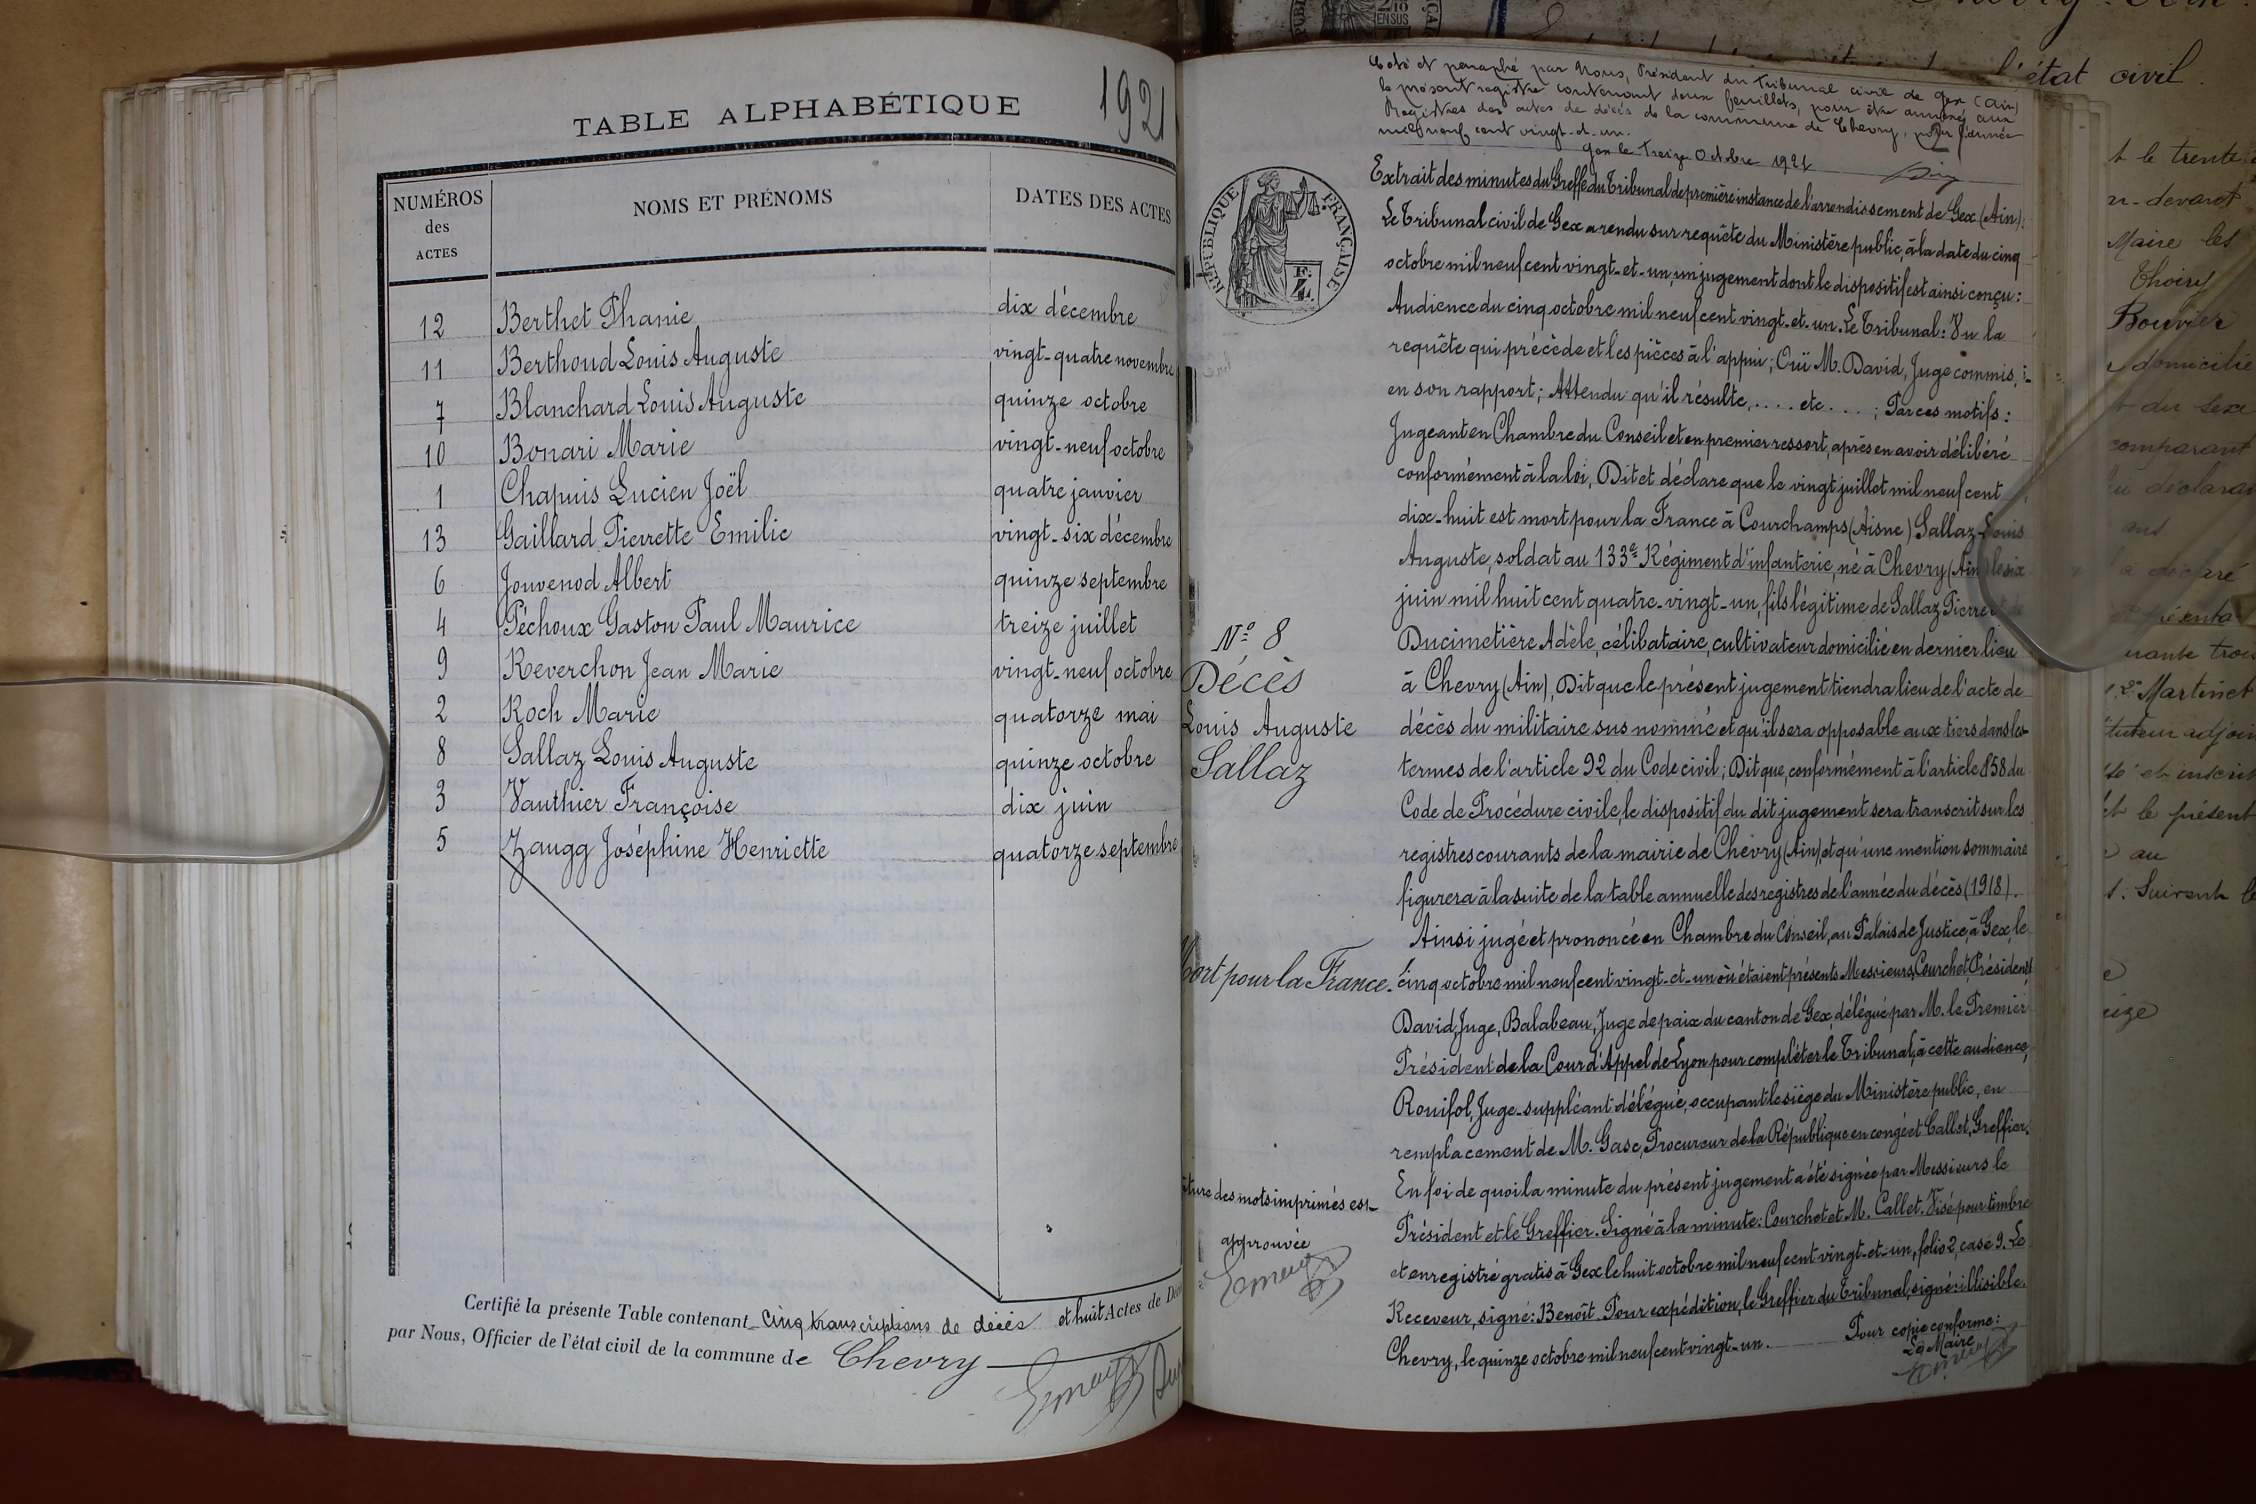 TABLE ALPHABÉTIQUE
1921
NUMÉROS des ACTES
NOMS ET PRÉNOMS
DATES DES ACTES
12 Berthet Phanie dix décembre
11 Berthoud Louis Auguste vingt-quatre novembre
7 Blanchard Louis Auguste quinze octobre
10 Bonari Marie vingt-neuf octobre
1 Chapuis Lucien Joël quatre janvier
13 Gaillard Pierrette Emilie vingt-six décembre
6 Jouvenod Albert quinze septembre
4 Péchoux Gaston Paul Maurice treize juillet
9 Reverchon Jean Marie vingt-neuf octobre
2 Roch Marie quatorze mai
8 Sallaz Louis Auguste quinze octobre
3 Vauthier Françoise dix juin
5 Zaugg Joséphine Henriette quatorze septembre
Certifié la présente Table contenant cinq transcriptions de décès et huit Actes de
par Nous, Officier de l'état civil de la commune de Chevry
Coté et paraphé par Nous, Président du Tribunal civil de Gex (Ain)
le présent registre contenant deux feuillets, pour être annexé aux
Registres des actes de décès de la commune de Chevry, pour l'année
mil neuf cent vingt-et-un.
Gex le treize Octobre 1921
RÉPUBLIQUE FRANÇAISE
Extrait des minutes du Greffe du Tribunal de première instance de l'arrondissement de Gex (Ain).
Le Tribunal civil de Gex a rendu sur requête du Ministère public, à la date du cinq
octobre mil neuf cent vingt-et-un, un jugement dont le dispositif est ainsi conçu:
Audience du cinq octobre mil neuf cent vingt-et-un. Le Tribunal: Vu la
requête qui précède et les pièces à l'appui; Ouï M. David, Juge commis,
en son rapport; Attendu qu'il résulte, .... etc ....; Par ces motifs:
Jugeant en Chambre du Conseil et en premier ressort, après en avoir délibéré
conformément à la loi, Dit et déclare que le vingt juillet mil neuf cent
dix-huit est mort pour la France à Courchamps (Aisne) Sallaz Louis
Auguste, soldat au 133e Régiment d'infanterie, né à Chevry (Ain) le six
juin mil huit cent quatre-vingt-un, fils légitime de Sallaz Pierre et de
Ducimetière Adèle, célibataire, cultivateur domicilié en dernier lieu
à Chevry (Ain), Dit que le présent jugement tiendra lieu de l'acte de
décès du militaire sus nommé et qu'il sera opposable aux tiers dans les
termes de l'article 92 du Code civil; Dit que, conformément à l'article 858 du
Code de Procédure civile, le dispositif du dit jugement sera transcrit sur les
registres courants de la mairie de Chevry (Ain) et qu'une mention sommaire
figurera à la suite de la table annuelle des registres de l'année du décès (1918).
Ainsi jugé et prononcé en Chambre du Conseil, au Palais de Justice, à Gex, le
cinq octobre mil neuf cent vingt-et-un où étaient présents Messieurs Courchet, Président
David, Juge, Balabeau, Juge de paix du canton de Gex, délégué par M. le Premier
Président de la Cour d'Appel de Lyon pour compléter le Tribunal, à cette audience,
Rouifol, Juge-suppléant délégué, occupant le siège du Ministère public, en
remplacement de M. Gasc, Procureur de la République en congé et Callet, Greffier.
En foi de quoi la minute du présent jugement a été signée par Messieurs le
Président et le Greffier. Signé à la minute: Courchet et M. Callet. Visé pour timbre
et enregistré gratis à Gex le huit octobre mil neuf cent vingt-et-un, folio 2, case 9. Le
Receveur, signé: Benoît. Pour expédition, le Greffier du Tribunal, signé: illisible.
Chevry, le quinze octobre mil neuf cent vingt-un. Pour copie conforme:
Le Maire
N° 8
Décès
Louis Auguste
Sallaz
Mort pour la France.
des mots imprimés est
approuvée
l'état civil.
t le trente
devant
Maire les
Thoiry
Bouvier
domicilié
du sexe
comparant
déclaré
présenta
trois
Martinet
adjoint
et inscrit
et le présent
au
Suivent